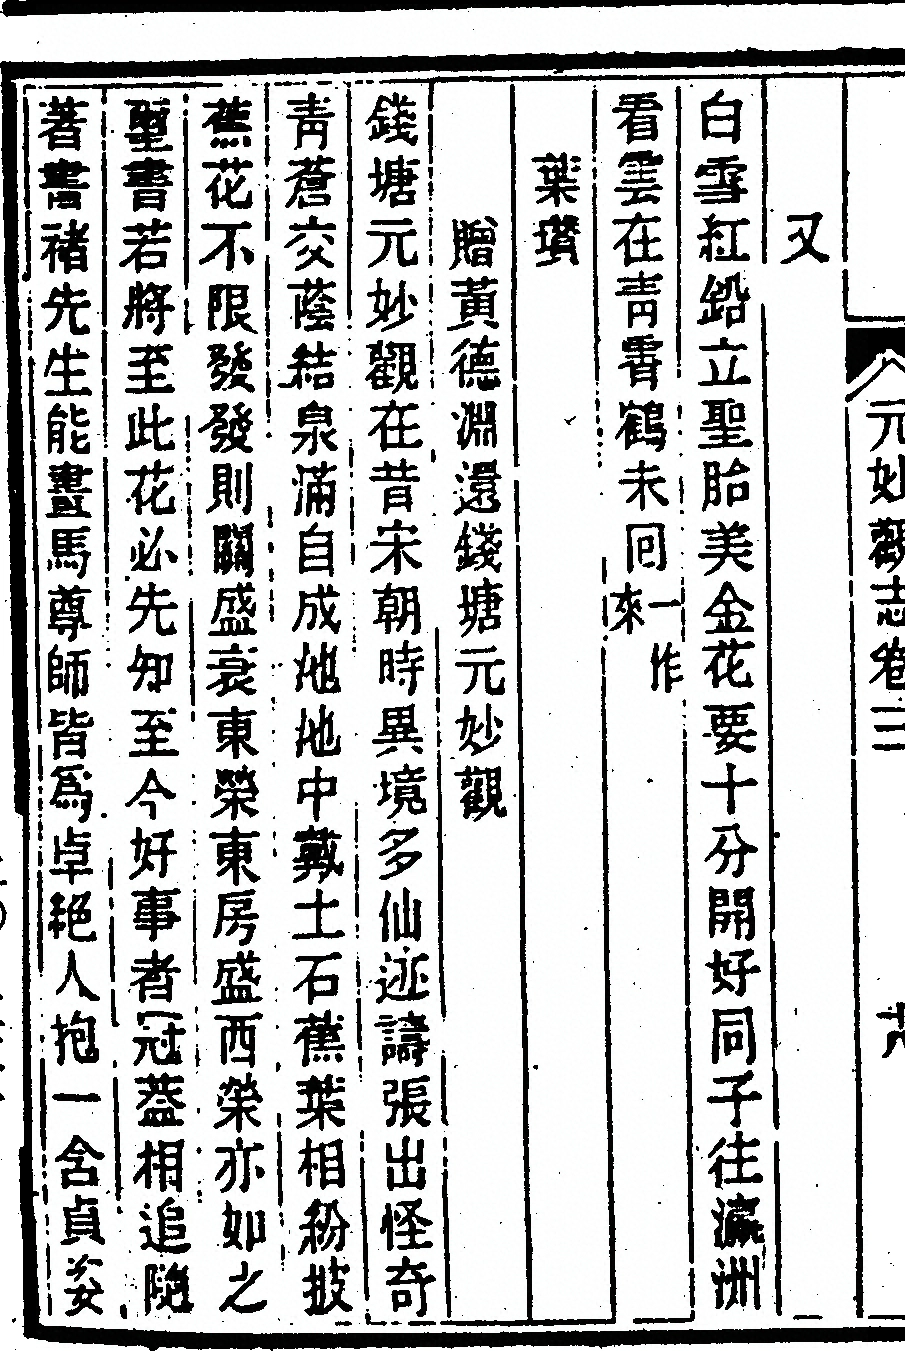 元妙觀志卷二
又
白雪紅鉛立聖胎美金花要十分開好同子往瀛洲
看雲在青霄鶴未回來一作
葉瓚
贈黃德淵還錢塘元妙觀
錢塘元妙觀在昔宋朝時異境多仙迹譸張出怪奇
青蒼交蔭結泉滿自成池池中戴土石蕉葉相紛披
蕉花不限發發則關盛衰東榮東房盛西榮亦如之
璽書若將至此花必先知至今好事者冠葢相追隨
著書褚先生能畫馬尊師皆爲卓絕人抱一含貞姿